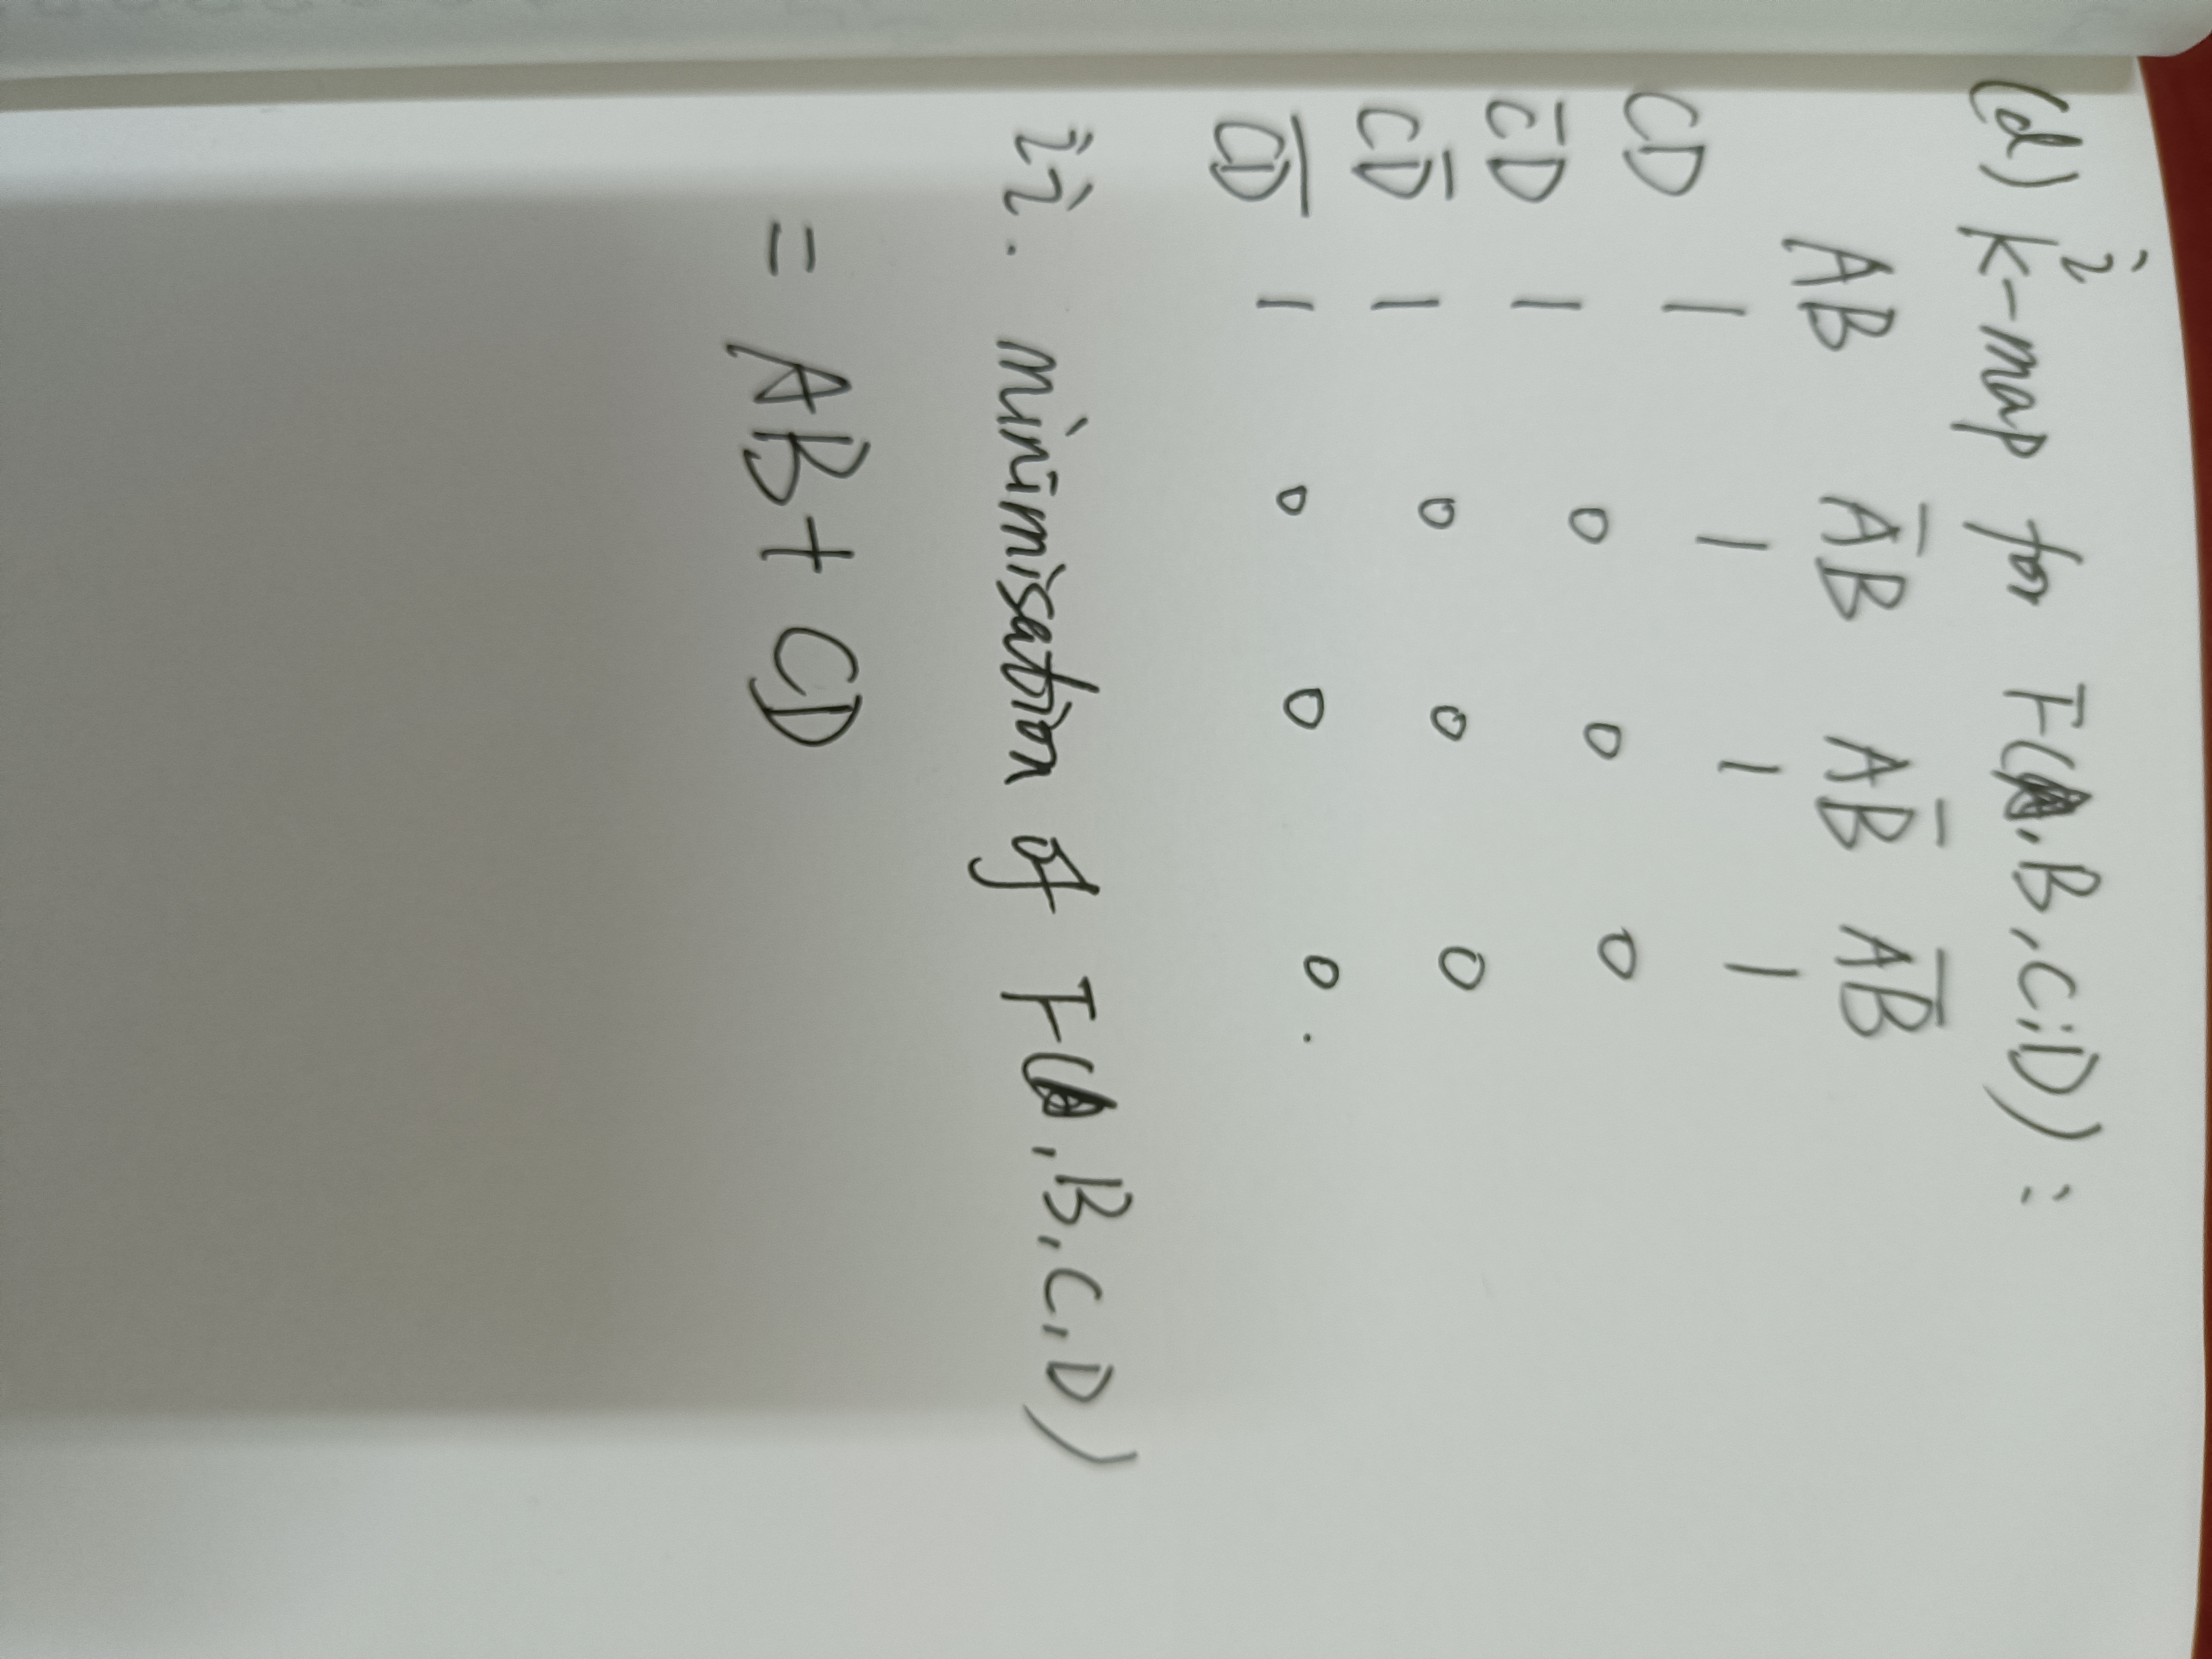 (d) i K-map for F(A,B,C,D):
AB A̅B AB̅ A̅B̅
CD 1 1 1 1
C̅D 1 0 0 0
CD̅ 1 0 0 0
C̅D̅ 1 0 0 0.
ii. minimisation of F(A,B,C,D)
= AB + CD